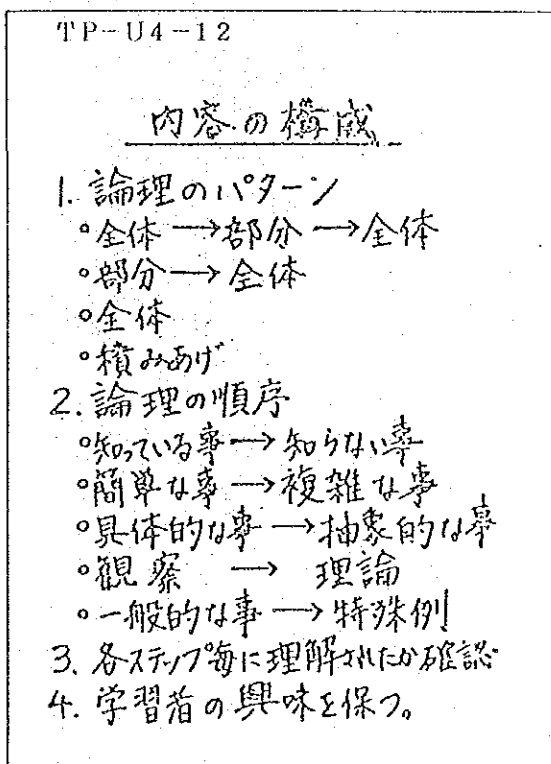 TP-U4-12
内容の構成
1. 論理のパターン
○全体→部分→全体
○部分→全体
○全体
○積みあげ
2. 論理の順序
○知っている事→知らない事
○簡単な事→複雑な事
○具体的な事→抽象的な事
○観察→理論
○一般的な事→特殊例
3. 各ステップ毎に理解されたか確認
4. 学習者の興味を保つ。